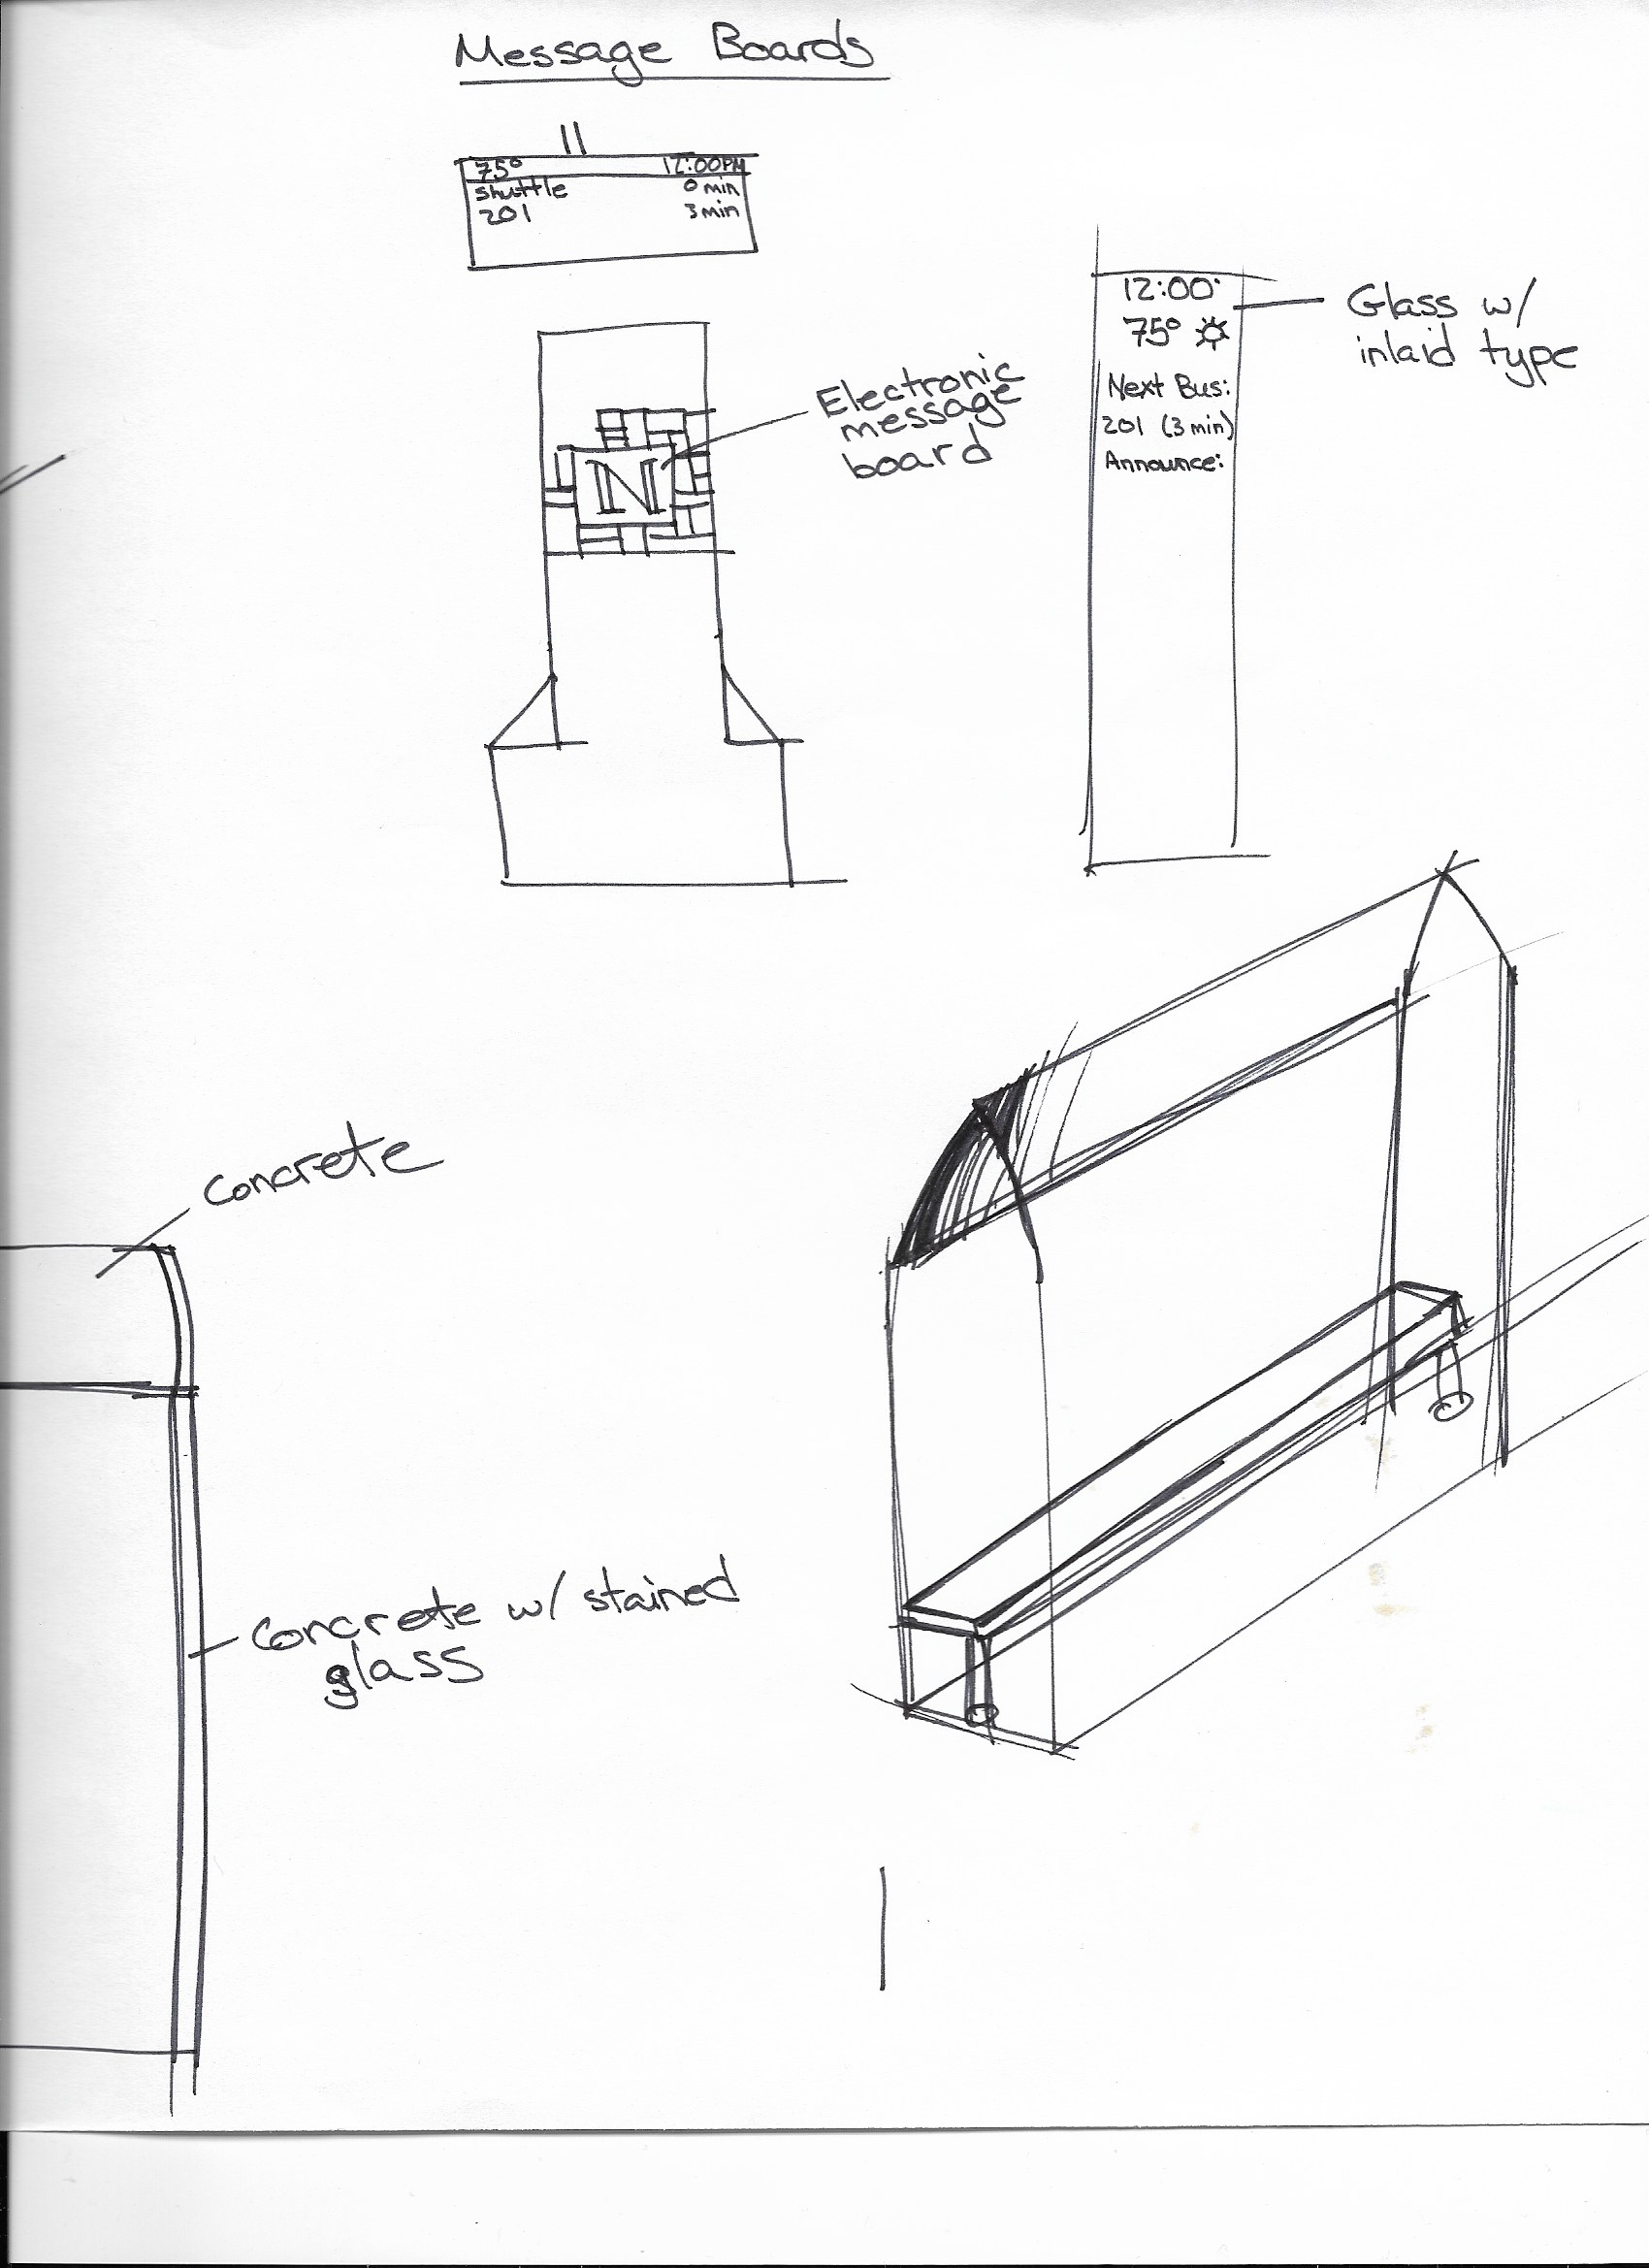 Message Boards
75° 12:00PM
shuttle 0 min
201 3 min
N
Electronic
message
board
12:00
75°
Next Bus:
201 (3 min)
Announce:
Glass w/
inlaid type
Concrete
Concrete w/ stained
glass